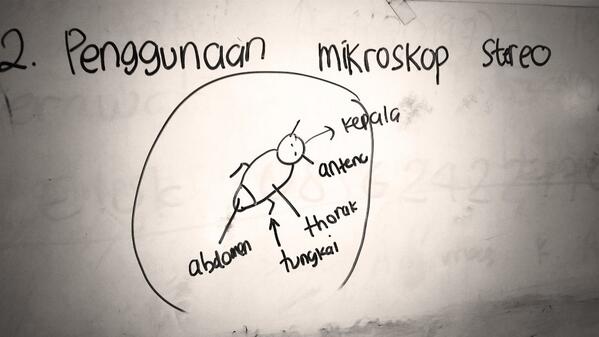 2. Penggunaan mikroskop stereo
kepala
antena
thorak
tungkai
abdomen